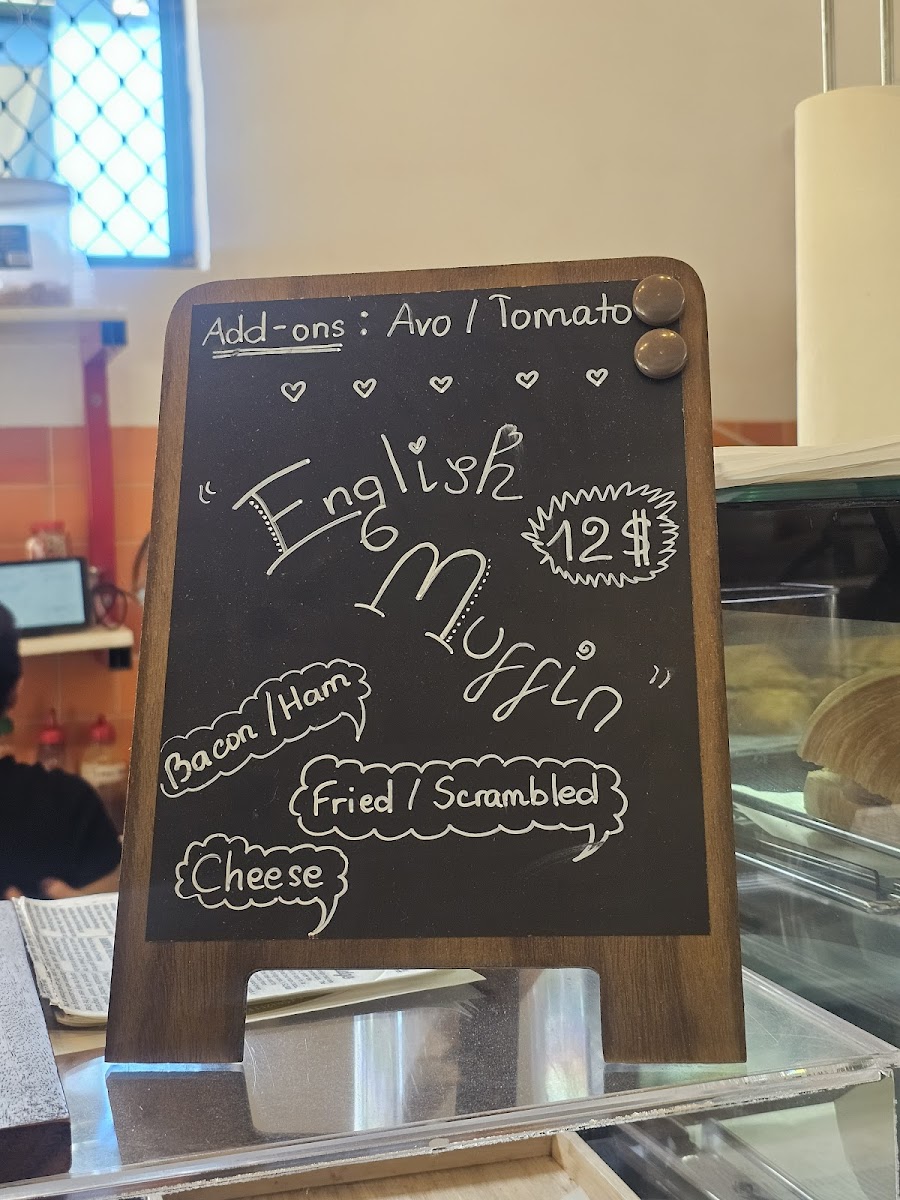 Add-ons : Avo / Tomato
“ English
12 $
Muffin ”
Bacon / Ham
Fried / Scrambled
Cheese